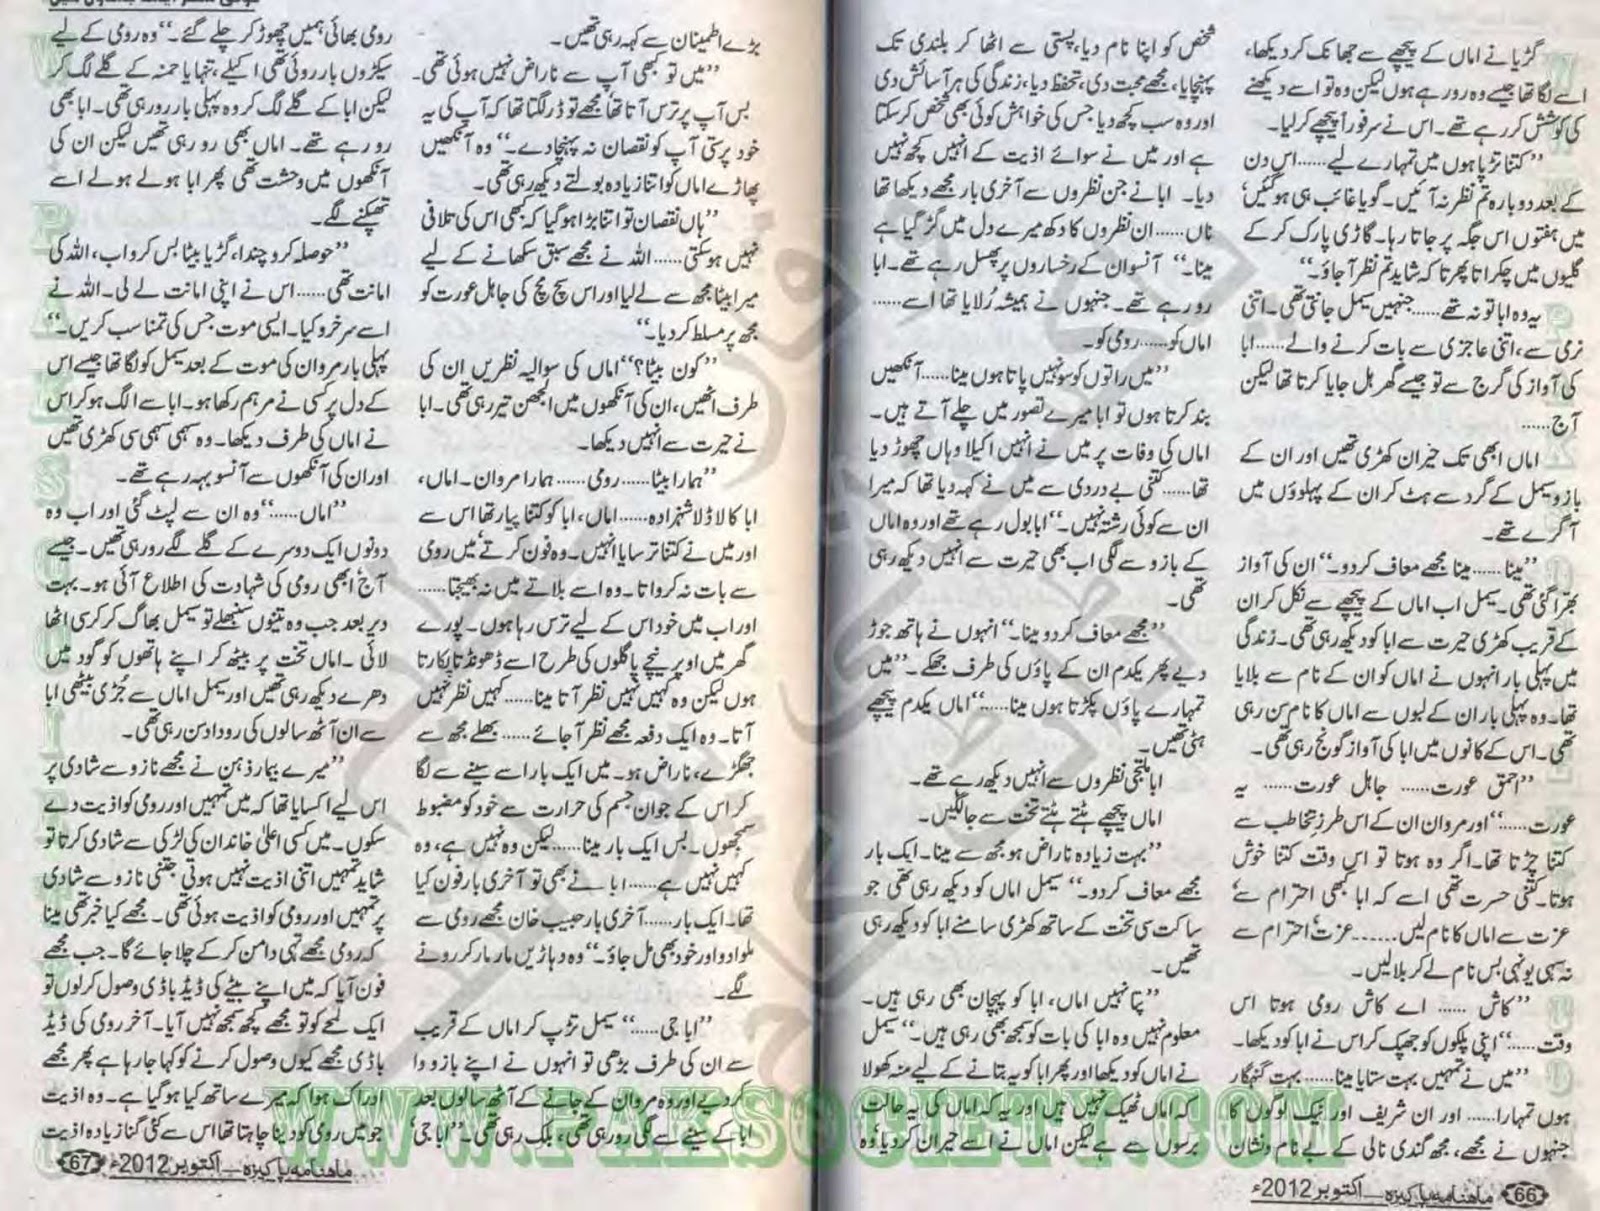 گڑیا نے اماں کے پیچھے سے جھانک کر دیکھا،
اسے لگا تھا جیسے وہ رو رہے ہوں لیکن وہ تو اسے دیکھنے
کی کوشش کر رہے تھے۔ اس نے سر فوراً پیچھے کر لیا۔
”کتنا تڑپا ہوں میں تمہارے لیے...... اس دن
کے بعد دوبارہ تم نظر نہ آئیں۔ گویا غائب ہی ہو گئیں‘
میں ہفتوں اس جگہ پر جاتا رہا۔ گاڑی پارک کر کے
گلیوں میں چکراتا پھرتا کہ شاید تم نظر آ جاؤ۔“
یہ وہ ابا تو نہ تھے...... جنہیں سیمل جانتی تھی۔ اتنی
نرمی سے، اتنی عاجزی سے بات کرنے والے...... ابا
کی آواز کی گرج سے تو جیسے گھر ہل جایا کرتا تھا لیکن
آج......
اماں ابھی تک حیران کھڑی تھیں اور ان کے
بازو سیمل کے گرد سے ہٹ کر ان کے پہلوؤں میں
آ گرے تھے۔
”مینا...... مینا مجھے معاف کر دو۔“ ان کی آواز
بھرا گئی تھی۔ سیمل اب اماں کے پیچھے سے نکل کر ان
کے قریب کھڑی حیرت سے ابا کو دیکھ رہی تھی۔ زندگی
میں پہلی بار انہوں نے اماں کو ان کے نام سے بلایا
تھا۔ وہ پہلی بار ان کے لبوں سے اماں کا نام سن رہی
تھی۔ اس کے کانوں میں ابا کی آواز گونج رہی تھی۔
”احمق عورت...... جاہل عورت...... یہ
عورت......“ اور مروان ان کے اس طرزِ تخاطب سے
کتنا چڑتا تھا۔ اگر وہ ہوتا تو اس وقت کتنا خوش
ہوتا۔ کتنی حسرت تھی اسے کہ ابا کبھی احترام سے‘
عزت سے اماں کا نام لیں....... عزت‘ احترام سے
نہ سہی یونہی بس نام لے کر بلا لیں۔
”کاش...... اے کاش رومی ہوتا اس
وقت......“ اپنی پلکوں کو جھپک کر اس نے ابا کو دیکھا۔
”میں نے تمہیں بہت ستایا مینا...... بہت گنہگار
ہوں تمہارا...... اور ان شریف اور نیک لوگوں کا
جنہوں نے مجھے، مجھ گندی نالی کے بے نام و نشان
ماہنامہ پاکیزہ۔ اکتوبر 2012ء 66
شخص کو اپنا نام دیا، پستی سے اٹھا کر بلندی تک
پہنچایا، مجھے محبت دی، تحفظ دیا، زندگی کی ہر آسائش دی
اور وہ سب کچھ دیا جس کی خواہش کوئی بھی شخص کر سکتا
ہے اور میں نے سوائے اذیت کے انہیں کچھ نہیں
دیا۔ ابا نے جن نظروں سے آخری بار مجھے دیکھا تھا
ناں...... ان نظروں کا دکھ میرے دل میں گڑ گیا ہے
مینا۔“ آنسو ان کے رخساروں پر پھسل رہے تھے۔ ابا
رو رہے تھے۔ جنہوں نے ہمیشہ رُلایا تھا اسے......
اماں کو...... رومی کو۔
”میں راتوں کو سو نہیں پاتا ہوں مینا...... آنکھیں
بند کرتا ہوں تو ابا میرے تصور میں چلے آتے ہیں۔
اماں کی وفات پر میں نے انہیں اکیلا وہاں چھوڑ دیا
تھا...... کتنی بے دردی سے میں نے کہہ دیا تھا کہ میرا
ان سے کوئی رشتہ نہیں۔“ ابا بول رہے تھے اور وہ اماں
کے بازو سے لگی اب بھی حیرت سے انہیں دیکھ رہی
تھی۔
”مجھے معاف کر دو مینا۔“ انہوں نے ہاتھ جوڑ
دیے پھر یکدم ان کے پاؤں کی طرف جھکے۔ ”میں
تمہارے پاؤں پکڑتا ہوں مینا......“ اماں یکدم پیچھے
ہٹی تھیں۔
ابا ملتجی نظروں سے انہیں دیکھ رہے تھے۔
اماں پیچھے ہٹتے ہٹتے تخت سے جا لگیں۔
”بہت زیادہ ناراض ہو مجھ سے مینا۔ ایک بار
مجھے معاف کر دو۔“ سیمل اماں کو دیکھ رہی تھی جو
ساکت سی تخت کے ساتھ کھڑی سامنے ابا کو دیکھ رہی
تھیں۔
”پتا نہیں اماں، ابا کو پہچان بھی رہی ہیں۔
معلوم نہیں وہ ابا کی بات کو سمجھ بھی رہی ہیں۔“ سیمل
نے اماں کو دیکھا اور پھر ابا کو یہ بتانے کے لیے منہ کھولا
کہ اماں ٹھیک نہیں ہیں اور یہ کہ اماں کی یہ حالت
برسوں سے ہے لیکن اماں نے اسے حیران کر دیا‘ وہ
بڑے اطمینان سے کہہ رہی تھیں۔
”میں تو کبھی آپ سے ناراض نہیں ہوئی تھی۔
بس آپ پر ترس آتا تھا مجھے تو ڈر لگتا تھا کہ آپ کی یہ
خود پرستی آپ کو نقصان نہ پہنچا دے۔“ وہ آنکھیں
پھاڑے اماں کو اتنا زیادہ بولتے دیکھ رہی تھی۔
”ہاں نقصان تو اتنا بڑا ہو گیا کہ کبھی اس کی تلافی
نہیں ہو سکتی...... اللہ نے مجھے سبق سکھانے کے لیے
میرا بیٹا مجھ سے لے لیا اور اس سچ مچ کی جاہل عورت کو
مجھ پر مسلط کر دیا۔“
”کون بیٹا؟“ اماں کی سوالیہ نظریں ان کی
طرف اٹھیں، ان کی آنکھوں میں الجھن تیر رہی تھی۔ ابا
نے حیرت سے انہیں دیکھا۔
”ہمارا بیٹا...... رومی...... ہمارا مروان۔ اماں،
ابا کا لاڈلا شہزادہ...... اماں، ابا کو کتنا پیار تھا اس سے
اور میں نے کتنا ترسایا انہیں۔ وہ فون کرتے‘ میں رومی
سے بات نہ کرواتا۔ وہ اسے بلاتے میں نہ بھیجتا......
اور اب میں خود اس کے لیے ترس رہا ہوں۔ پورے
گھر میں اوپر نیچے پاگلوں کی طرح اسے ڈھونڈتا پکارتا
ہوں لیکن وہ کہیں نہیں نظر آتا مینا...... کہیں نظر نہیں
آتا۔ وہ ایک دفعہ مجھے نظر آ جائے...... بھلے مجھ سے
جھگڑے، ناراض ہو۔ میں ایک بار اسے سینے سے لگا
کر اس کے جوان جسم کی حرارت سے خود کو مضبوط
سمجھوں۔ بس ایک بار مینا...... لیکن وہ نہیں ہے، وہ
کہیں نہیں ہے...... ابا نے بھی تو آخری بار فون کیا
تھا۔ ایک بار...... آخری بار حبیب خان مجھے رومی سے
ملوا دو اور خود بھی مل جاؤ۔“ وہ دہاڑیں مار مار کر رونے
لگے۔
”ابا جی......“ سیمل تڑپ کر اماں کے قریب
سے ان کی طرف بڑھی تو انہوں نے اپنے بازو وا
کر دیے اور وہ مروان کے جانے کے آٹھ سالوں بعد
ابا کے سینے سے لگی رو رہی تھی، بلک رہی تھی۔ ”ابا جی‘
رومی بھائی ہمیں چھوڑ کر چلے گئے۔“ وہ رومی کے لیے
سیکڑوں بار روئی تھی اکیلے، تنہا یا حمنہ کے گلے لگ کر
لیکن ابا کے گلے لگ کر وہ پہلی بار رو رہی تھی۔ ابا بھی
رو رہے تھے۔ اماں بھی رو رہی تھیں لیکن ان کی
آنکھوں میں وحشت تھی پھر ابا ہولے ہولے اسے
تھپکنے لگے۔
”حوصلہ کرو چندا، گڑیا بیٹا بس کرو اب، اللہ کی
امانت تھی...... اس نے اپنی امانت لے لی۔ اللہ نے
اسے سرخرو کیا۔ ایسی موت جس کی تمنا سب کریں۔“
پہلی بار مروان کی موت کے بعد سیمل کو لگا تھا جیسے اس
کے دل پر کسی نے مرہم رکھا ہو۔ ابا سے الگ ہو کر اس
نے اماں کی طرف دیکھا۔ وہ سہمی سہمی سی کھڑی تھیں
اور ان کی آنکھوں سے آنسو بہہ رہے تھے۔
”اماں......“ وہ ان سے لپٹ گئی اور اب وہ
دونوں ایک دوسرے کے گلے لگے رو رہی تھیں۔ جیسے
آج‘ ابھی رومی کی شہادت کی اطلاع آئی ہو۔ بہت
دیر بعد جب وہ تینوں سنبھلے تو سیمل بھاگ کر کرسی اٹھا
لائی۔ اماں تخت پر بیٹھ کر اپنے ہاتھوں کو گود میں
دھرے دیکھ رہی تھیں اور سیمل اماں سے جُڑی بیٹھی ابا
سے ان آٹھ سالوں کی روداد سن رہی تھی۔
”میرے بیمار ذہن نے مجھے نازو سے شادی پر
اس لیے اکسایا تھا کہ میں تمہیں اور رومی کو اذیت دے
سکوں۔ میں کسی اعلیٰ خاندان کی لڑکی سے شادی کرتا تو
شاید تمہیں اتنی اذیت نہیں ہوتی جتنی نازو سے شادی
پر تمہیں اور رومی کو اذیت ہوئی تھی۔ مجھے کیا خبر تھی مینا
کہ رومی مجھے تہی دامن کر کے چلا جائے گا۔ جب مجھے
فون آیا کہ میں اپنے بیٹے کی ڈیڈ باڈی وصول کر لوں تو
ایک لمحے کو تو مجھے کچھ سمجھ نہیں آیا۔ آخر رومی کی ڈیڈ
باڈی مجھے کیوں وصول کرنے کو کہا جا رہا ہے پھر مجھے
ادراک ہوا کہ میرے ساتھ کیا ہو گیا ہے۔ وہ اذیت
جو میں رومی کو دینا چاہتا تھا اس سے کئی گنا زیادہ اذیت
ماہنامہ پاکیزہ۔ اکتوبر 2012ء 67
WWW.PAKSOCIETY.COM